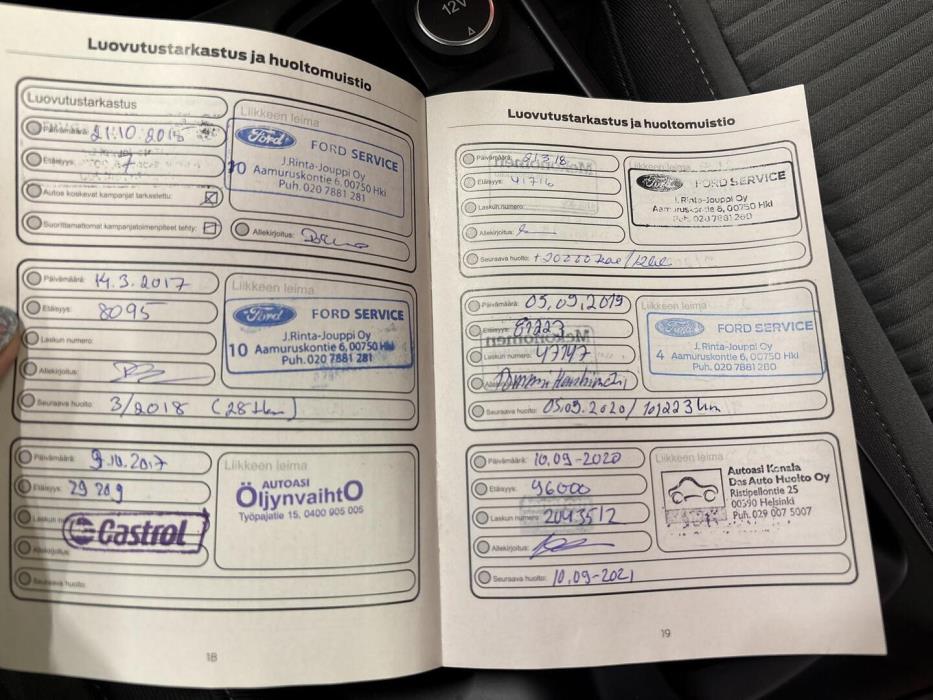 12V
Luovutustarkastus ja huoltomuistio
Luovutustarkastus
Liikkeen leima
Päivämäärä: 21.10.201
Etäisyys: 7
Autoa koskevat kampanjat tarkastettu:
Suorittamattomat kampanjatoimenpiteet tehty:
Ford FORD SERVICE
10 J.Rinta-Jouppi Oy
Aamuruskontie 6, 00750 Hki
Puh. 020 7881 281
Allekirjoitus:
Päivämäärä: 14.3.2017
Etäisyys: 8095
Laskun numero:
Allekirjoitus:
Seuraava huolto: 3/2018 (28tkm)
Liikkeen leima
Ford FORD SERVICE
J.Rinta-Jouppi Oy
10 Aamuruskontie 6, 00750 Hki
Puh. 020 7881 281
Päivämäärä: 9.10.2017
Etäisyys: 29209
Laskun
Castrol
Allekirjoitus:
Seuraava huolto:
Liikkeen leima
AUTOASI
ÖljynvaihtO
Työpajatie 15, 0400 905 005
18
Luovutustarkastus ja huoltomuistio
Päivämäärä: 21.3.18
Etäisyys: 41716
Laskun numero:
Allekirjoitus:
Seuraava huolto: +20000
Liikkeen leima
Ford FORD SERVICE
J.Rinta-Jouppi Oy
Aamuruskontie 6, 00750 Hki
Puh. 020 7881 280
Päivämäärä: 05.09.2019
Etäisyys: 81223
Laskun numero: 47747
Seuraava huolto: 05.09.2020/101223km
Liikkeen leima
Ford FORD SERVICE
J.Rinta-Jouppi Oy
4 Aamuruskontie 6, 00750 Hki
Puh. 020 7881 280
Päivämäärä: 10.09-2020
Etäisyys: 96000
Laskun numero: 2043512
Allekirjoitus:
Seuraava huolto: 10.09-2021
Liikkeen leima
Autoasi Konala
Das Auto Huolto Oy
Ristipellontie 25
00390 Helsinki
Puh. 029 007 5007
19